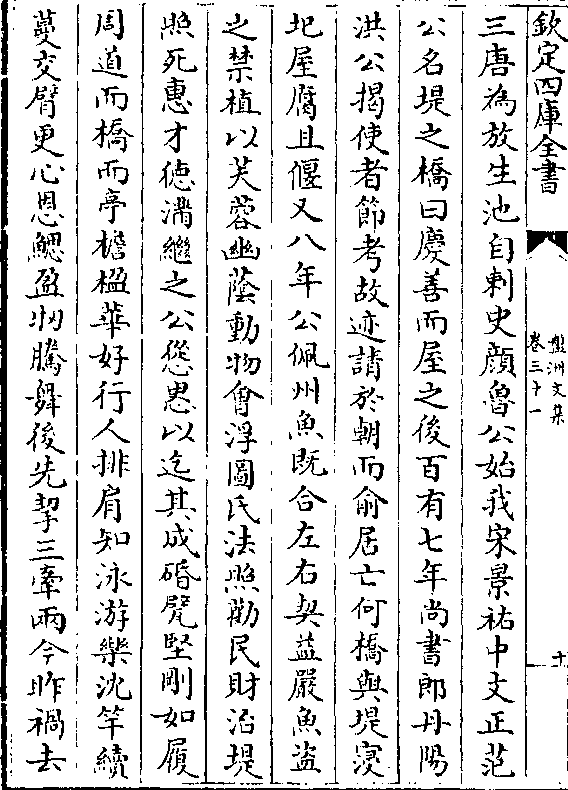 欽定四庫全書
盤洲文集
卷三十一
十
三唐為放生池自刺史顔魯公始我宋景祐中文正范
公名堤之橋曰慶善而屋之後百有七年尚書郎丹陽
洪公揭使者節考故迹請於朝而俞居亡何橋與堤寖
圮屋腐且偃又八年公佩州魚既合左右契益嚴魚盗
之禁植以芙蓉幽蔭動物會浮圖氏法照勸民財治堤
照死惠才徳溥繼之公慫恿以迄其成碈甃堅剛如履
周道而橋而亭檐楹華好行人排肩知泳游樂沈竿續
蔓交臂更心恩鰓盈牣騰舞後先挈三牽兩今昨禍去